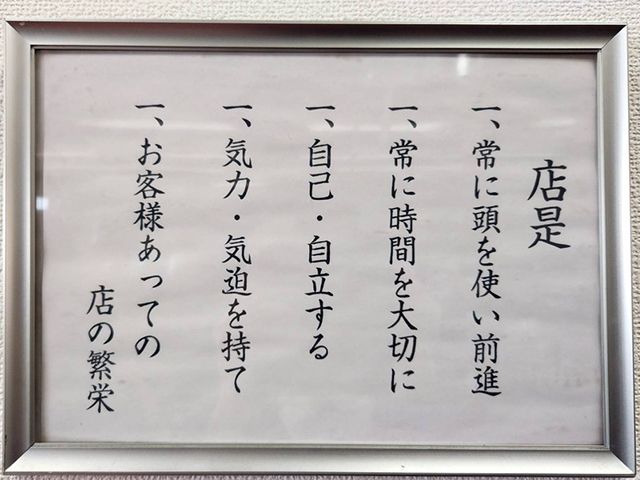 店是
一、常に頭を使い前進
一、常に時間を大切に
一、自己・自立する
一、気力・気迫を持て
一、お客様あっての
店の繁栄